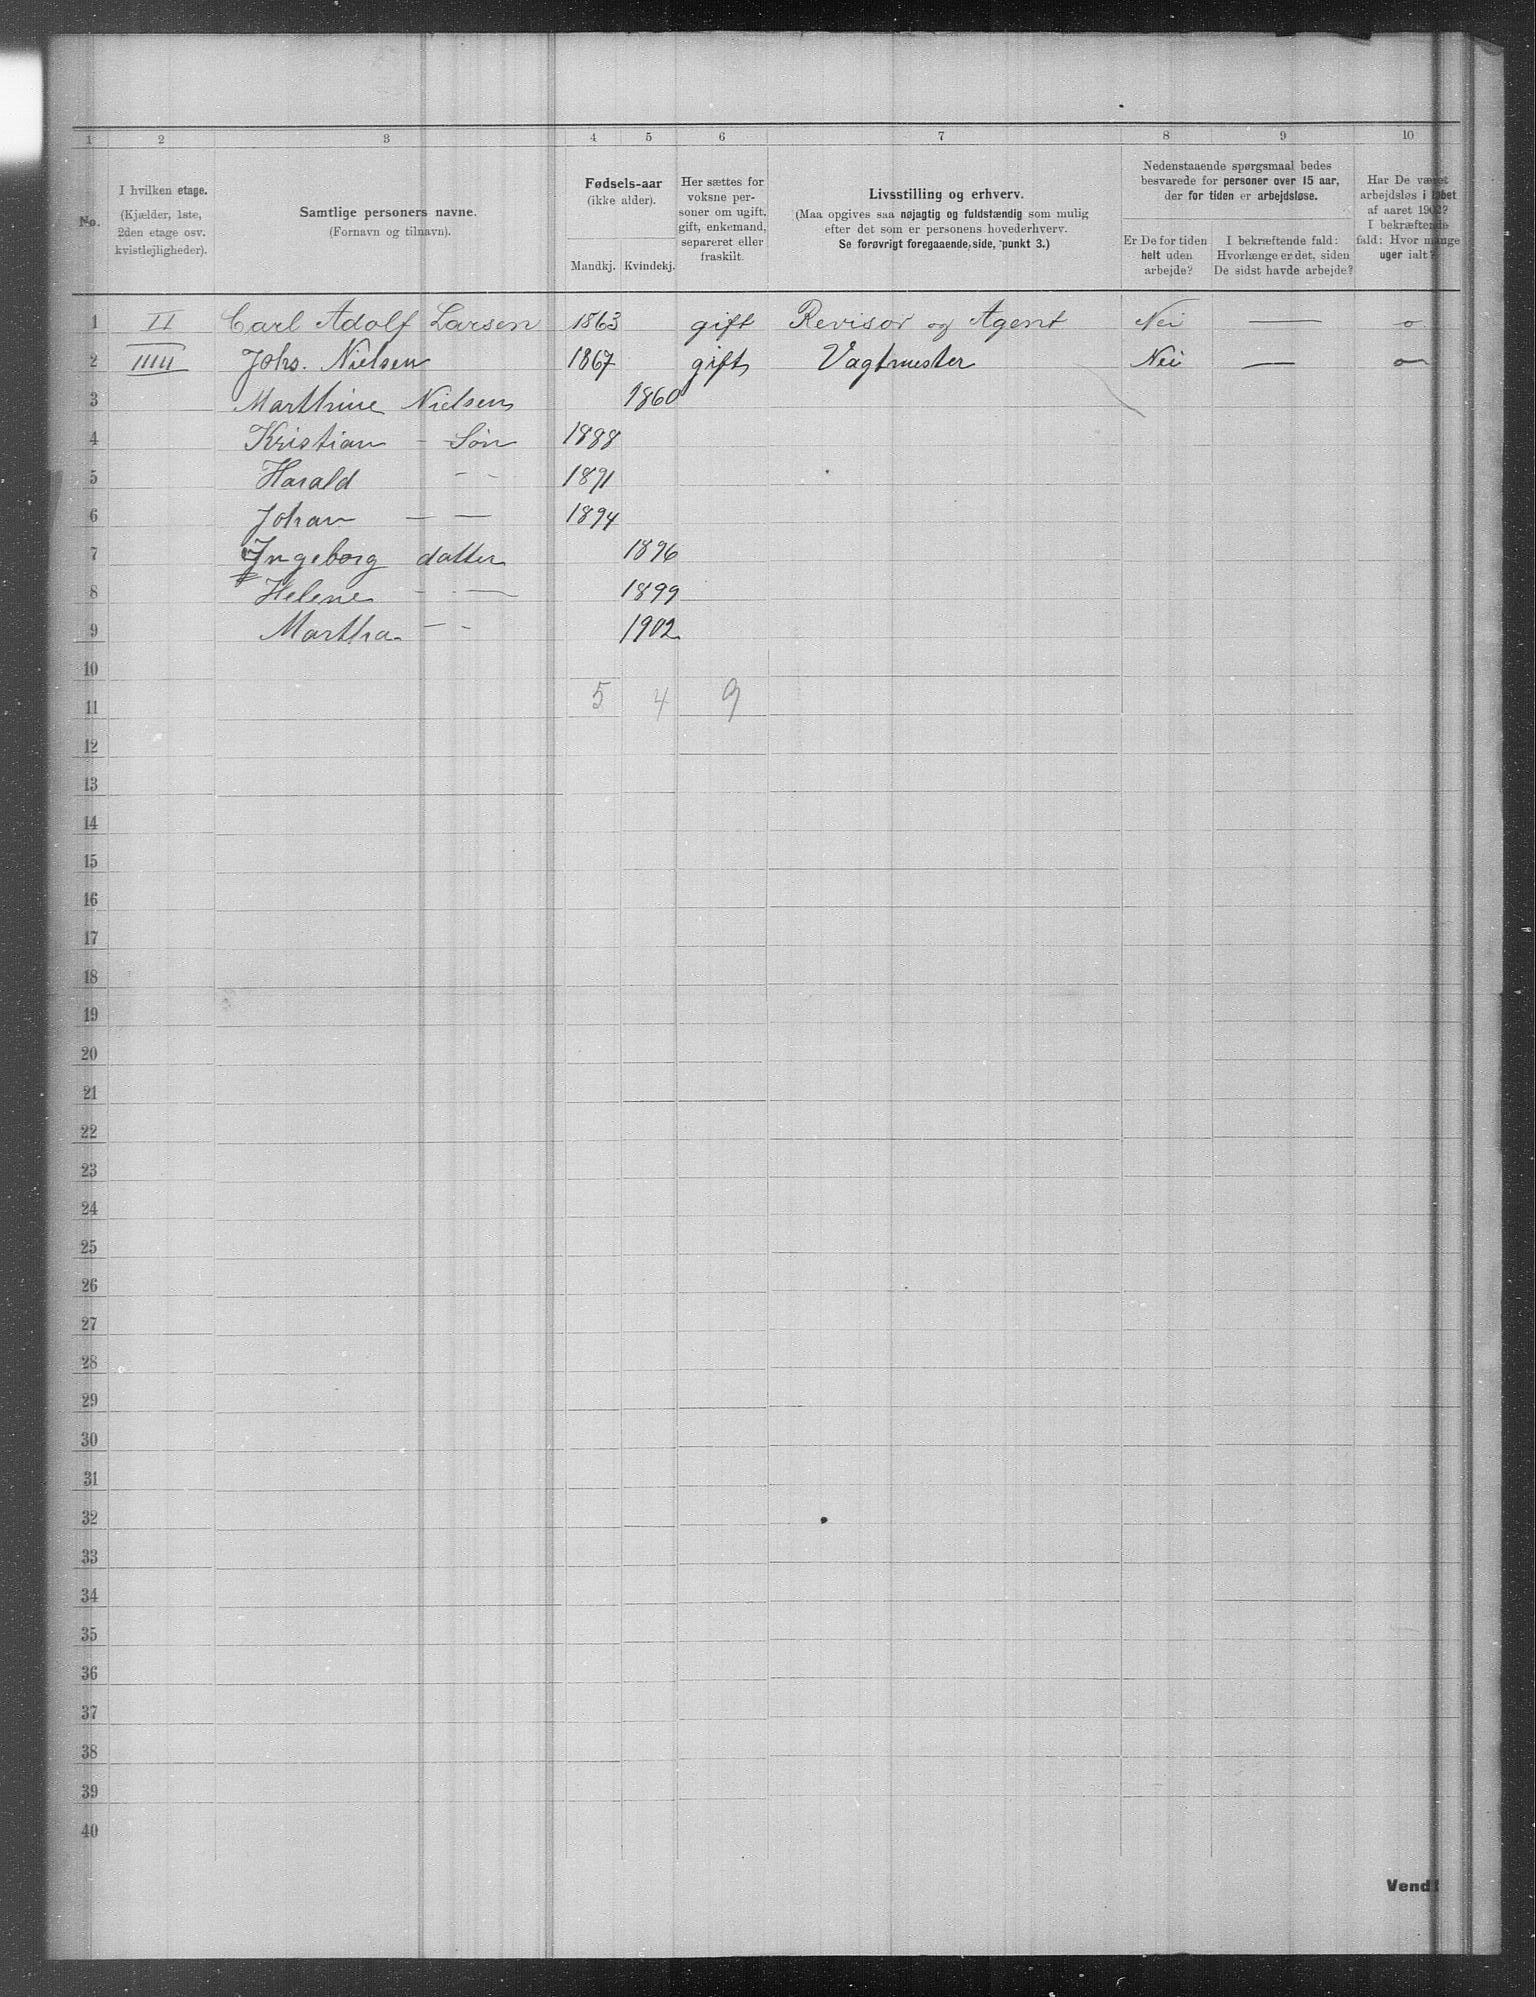 1 2 3 4 5 6 7 8 9 10
No.
I hvilken etage.
(Kjælder, 1ste, 2den etage osv. kvistlejligheder).
Samtlige personers navne.
(Fornavn og tilnavn).
Fødsels-aar
(ikke alder).
Mandkj. Kvindekj.
Her sættes for voksne personer om ugift, gift, enkemand, separeret eller fraskilt.
Livsstilling og erhverv.
(Maa opgives saa nøjagtig og fuldstændig som mulig
efter det som er personens hovederhverv.
Se forøvrigt foregaaende side, punkt 3.)
Nedenstaaende spørgsmaal bedes
besvarede for personer over 15 aar,
der for tiden er arbejdsløse.
Er De for tiden
helt uden
arbejde?
I bekræftende fald:
Hvorlænge er det, siden
De sidst havde arbejde?
Har De været
arbejdsløs i løbet
af aaret 1902?
I bekræftende
fald: Hvor mange
uger ialt?
1 II Carl Adolf Larsen 1863 gift Revisor og Agent Nei — o
2 IIIII Johs. Nielsen 1867 gift Vagtmester Nei — o
3 Marthine Nielsen 1860
4 Kristian - Søn 1888
5 Harald - - 1891
6 Johan — — 1894
7 Ingeborg datter 1896
8 Helene - — 1899
9 Martha - - 1902
10
11 5 4 9
12
13
14
15
16
17
18
19
20
21
22
23
24
25
26
27
28
29
30
31
32
33
34
35
36
37
38
39
40
Vend!